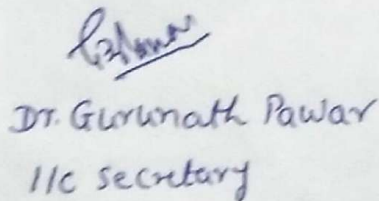 Dr. Gurunath Pawar
I/c Secretary